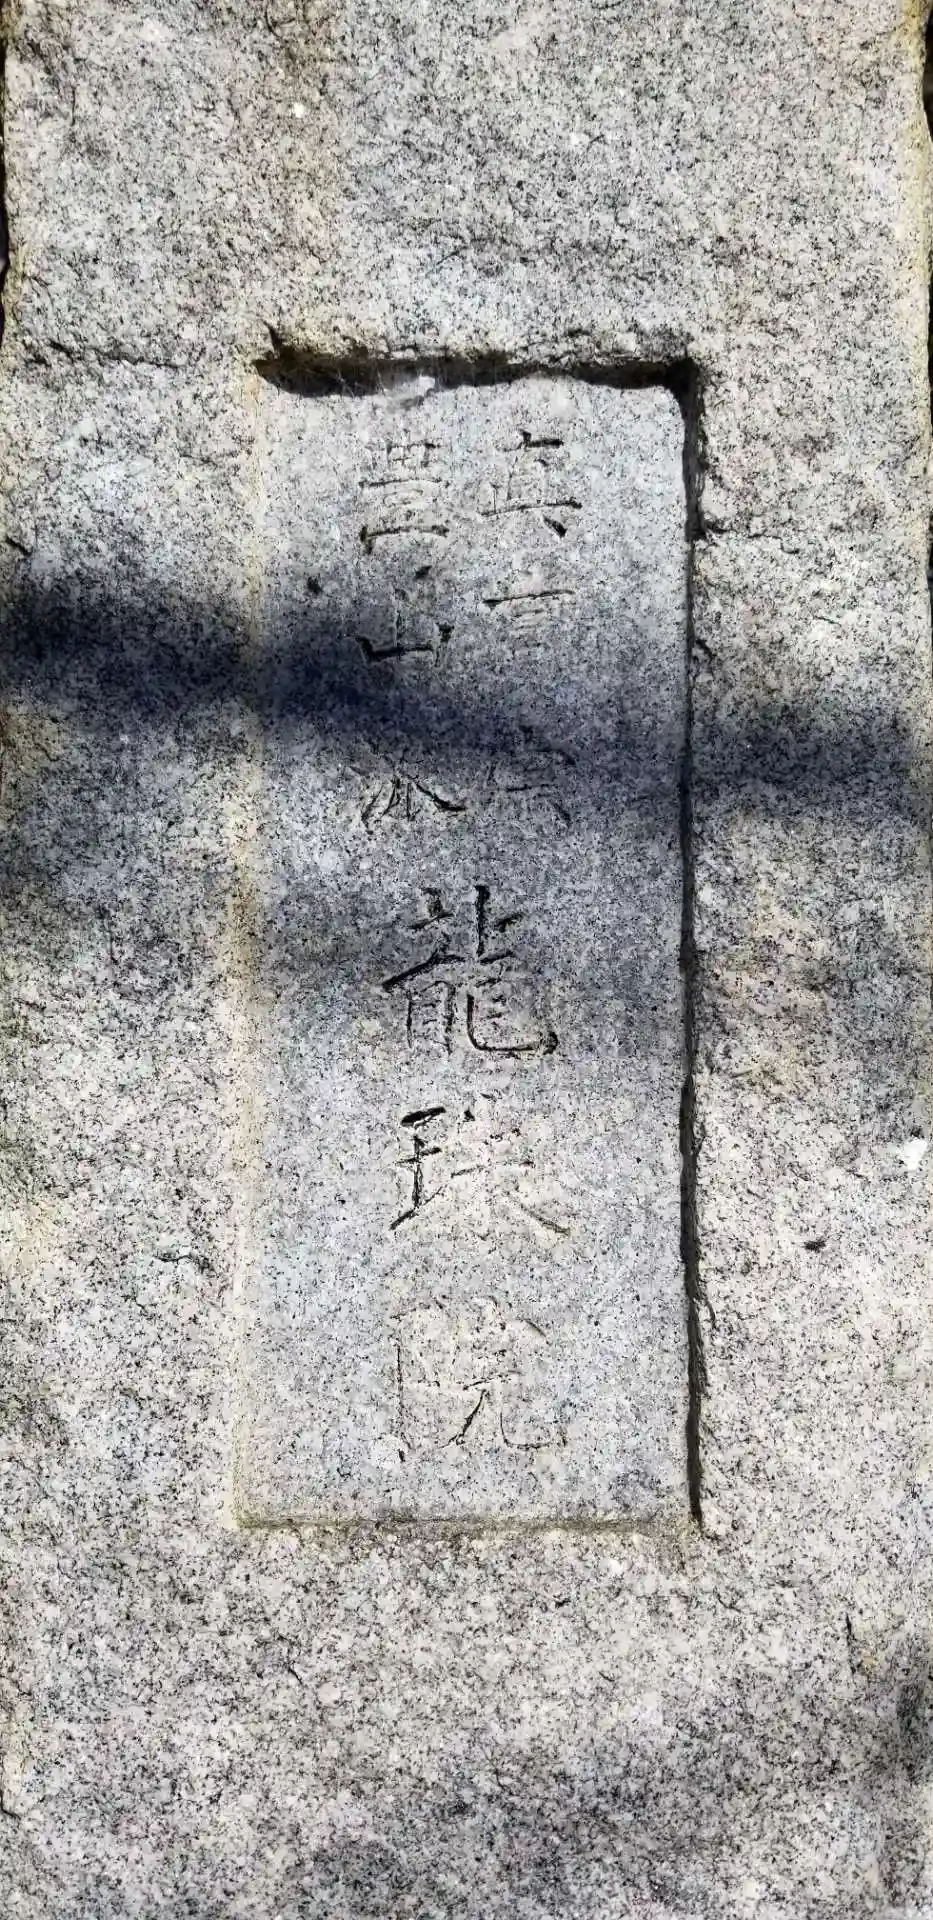 真言宗
豊山派
龍珠院